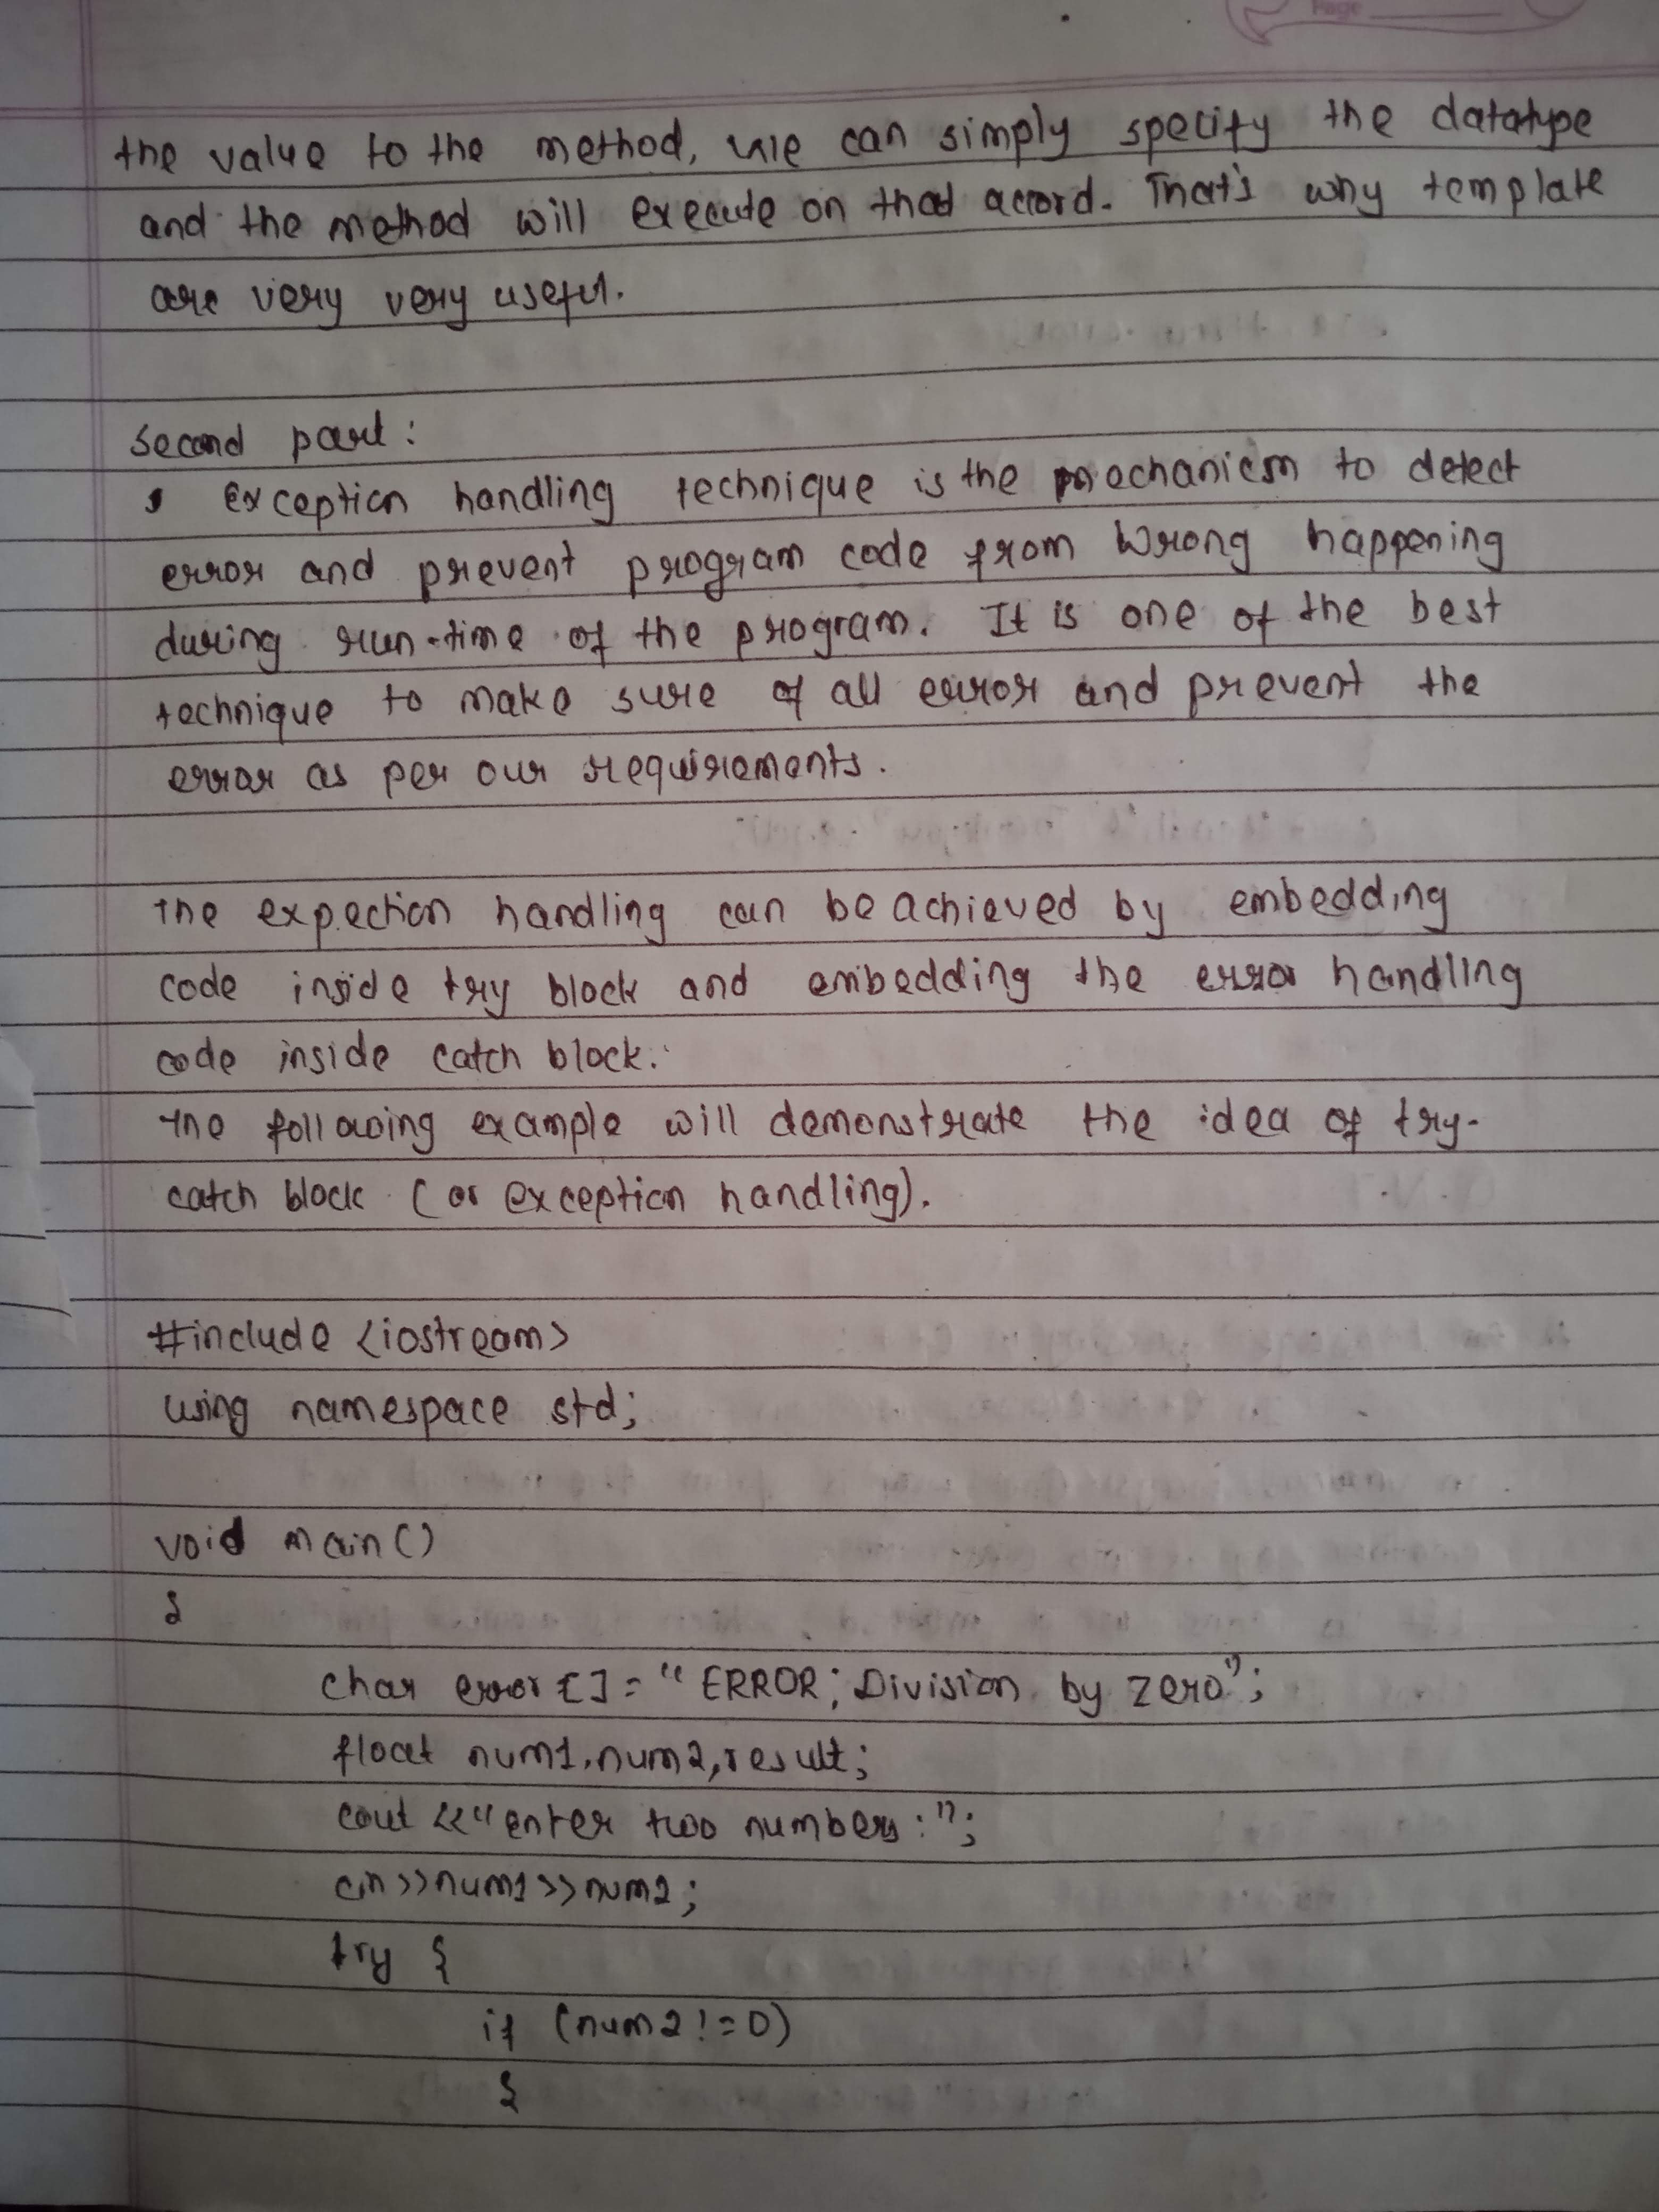 Page
the value to the method, we can simply specify the datatype
and the method will execute on that accord. That's why template
are very very useful.
Second part:
Exception handling technique is the mechanism to detect
error and prevent program code from wrong happening
during run-time of the program. It is one of the best
technique to make sure of all error and prevent the
error as per our requirements.
The expection handling can be achieved by embedding
code inside try block and embedding the error handling
code inside catch block.
The following example will demonstrate the idea of try-
catch block (or exception handling).
#include <iostream>
using namespace std;
void main()
{
char error[]="ERROR; Division by zero";
float num1,num2,result;
cout <<"enter two numbers:";
cin>>num1>>num2;
try {
if (num2!=0)
{